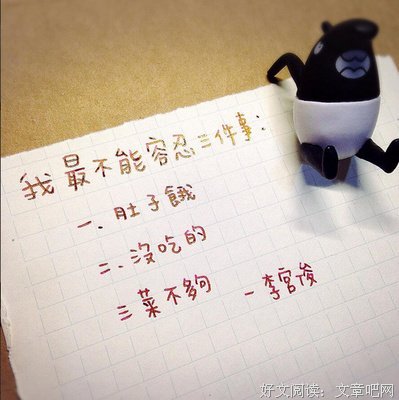 我最不能容忍三件事:
一.肚子餓
二.沒吃的
三菜不夠 －李宮俊
好文阅读：文章吧网